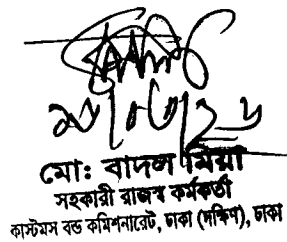 মো: বাদল মিয়া
সহকারী রাজস্ব কর্মকর্তা
কাস্টমস বন্ড কমিশনারেট, ঢাকা (দক্ষিণ), ঢাকা